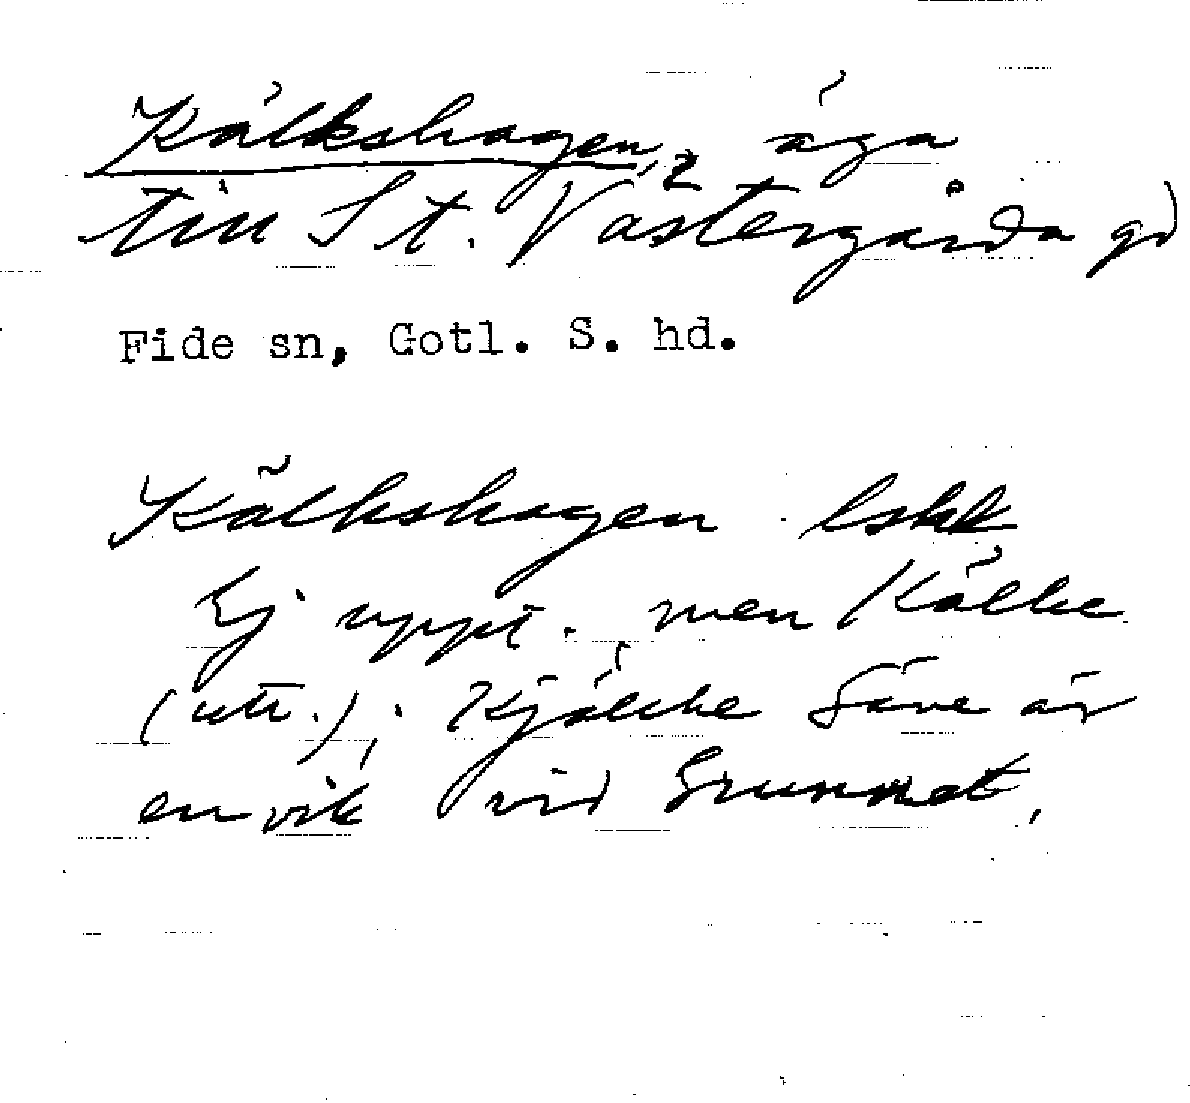 Kälkshagen, 2 äga
till St. Västergårda gd
Fide sn, Gotl. S. hd.
Kälkshagen lskt
Ej uppt., men Kälke
(utt.); Kjälcke Säve är
en vik vid Grunnet,